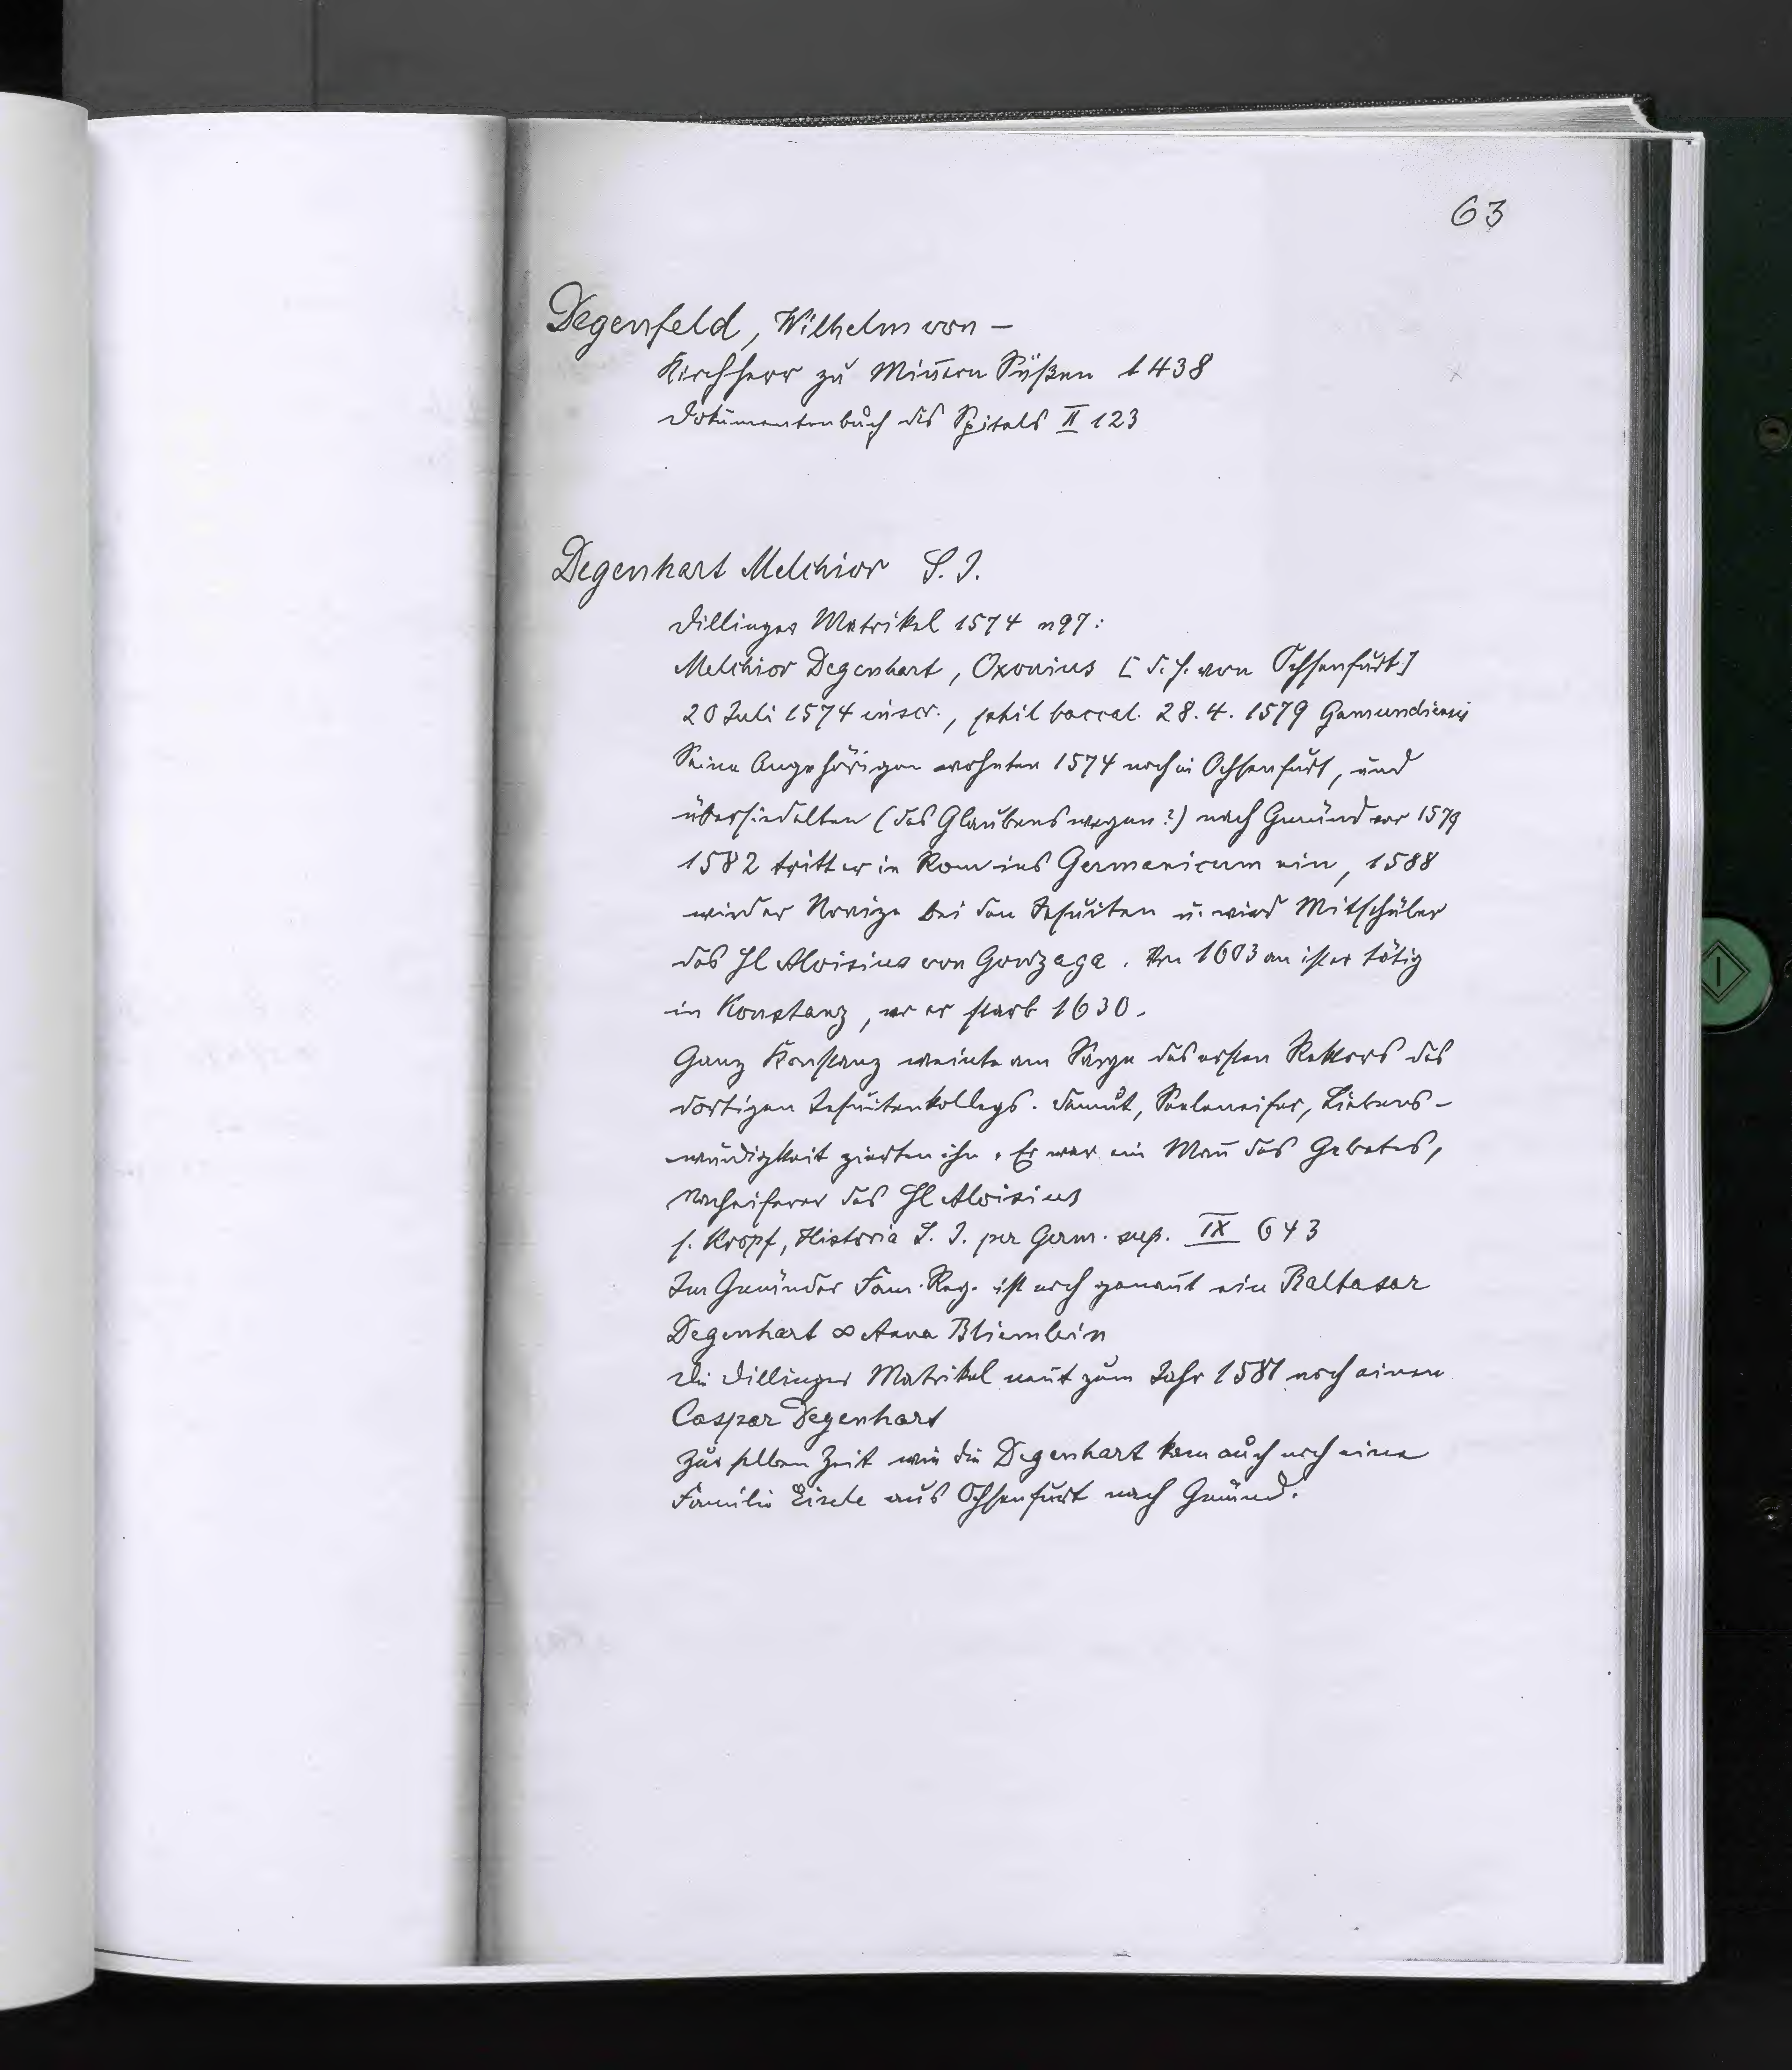 63
Degenfeld, Wilhelm von –
Kirchherr zu Mindern Süßen 1438
Dokumentenbuch des Spitals II 123
Degenhart Melchior S. J.
Dillinger Matrikel 1574 n 97:
Melchior Degenhart, Oxonius [d. h. von Ochsenfurt]
20 Juli 1574 inscr., phil baccal. 28. 4. 1579 Gamundiensis
Seine Angehörigen wohnten 1574 noch in Ochsenfurt, und
übersiedelten (des Glaubens wegen?) nach Gmünd vor 1579
1582 tritt er in Rom ins Germanicum ein, 1588
wird er Novize bei den Jesuiten u. wird Mitschüler
des Hl Aloisius von Gonzaga. Von 1603 an ist er tätig
in Konstanz, wo er starb 1630.
Ganz Konstanz weinte am Sarge des ersten Rektors des
dortigen Jesuitenkollegs. Demut, Seeleneifer, Liebens-
würdigkeit zierten ihn. Er war ein Mañ des Gebetes,
Nacheiferer des Hl Aloisius
s. Kropf, Historia S. J. per Germ. sup. IX 643
Im Gmünder Fam. Reg. ist noch genañt ein Baltasar
Degenhart ∞ Anna Bliemlein
Die Dillinger Matrikel neñt zum Jahr 1581 noch einen
Caspar Degenhart
Zur selben Zeit wie die Degenhart kam auch noch eine
Familie Eisele aus Ochsenfurt nach Gmünd.